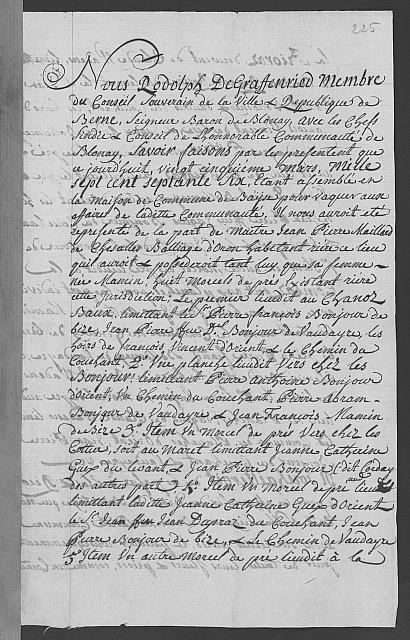 225.
Nous Rodolph DeGraffenried Membre
du Conseil Souverain de la Ville & Republique de
Berne, Seigneur Baron de Blonay, avec les Chefs
& Conseil de l'honnorable Communauté de
Blonay, Savoir faisons par les presentes que
ce jourdhuit, vingt cinquieme mars, Mille
Sept cent septante Six, étant assemblé en
la Maison de Commune de Baye pour vaquer aux
affaires de ladite Communauté, Il nous auroit été
representé de la part de Maitre Jean Pierre Maillard
de Chesalles Balliage d'Oron habitent riere ce lieu
qu'il auroit & possederoit tent luy que sa femme
née Mamin, huit Morcels de prés, Existant riere
cette jurisdiction; Le premier lieudit au Chanoz
Baux, limittant le Sr. Pierre françois Bonjour de
bize, Jean Pierre ffeu Dd. Bonjour de Vaudayre, les
hoirs de françois Vincent d'Orient, & le Chemin du
Couchant, 2.° Une planche lieudit Vers chez les
Bonjour, limittant Pierre Anthoine Bonjour
d'orient, Un Chemin du Couchant, Pierre Abram
Bonjour de Vaudayre, & Jean François Mamin
de Bize 3.° Item Un Morcel de pré Vers chez les
Cottier, soit au Maret limittant Jeanne Catherine
Guex du levant, & Jean Pierre Bonjour dit Corday
des autres part, 4.° Item Un Morcel de pré au lieudit
limittant laditte Jeanne Catherine Guex d'Orient
le Sr. Jean ffeu Jean Dupraz du Couchant, Jean
Pierre Bonjour de bize, & le Chemin de Vaudayre
5.° Item Un autre Morcel de pré lieudit à la